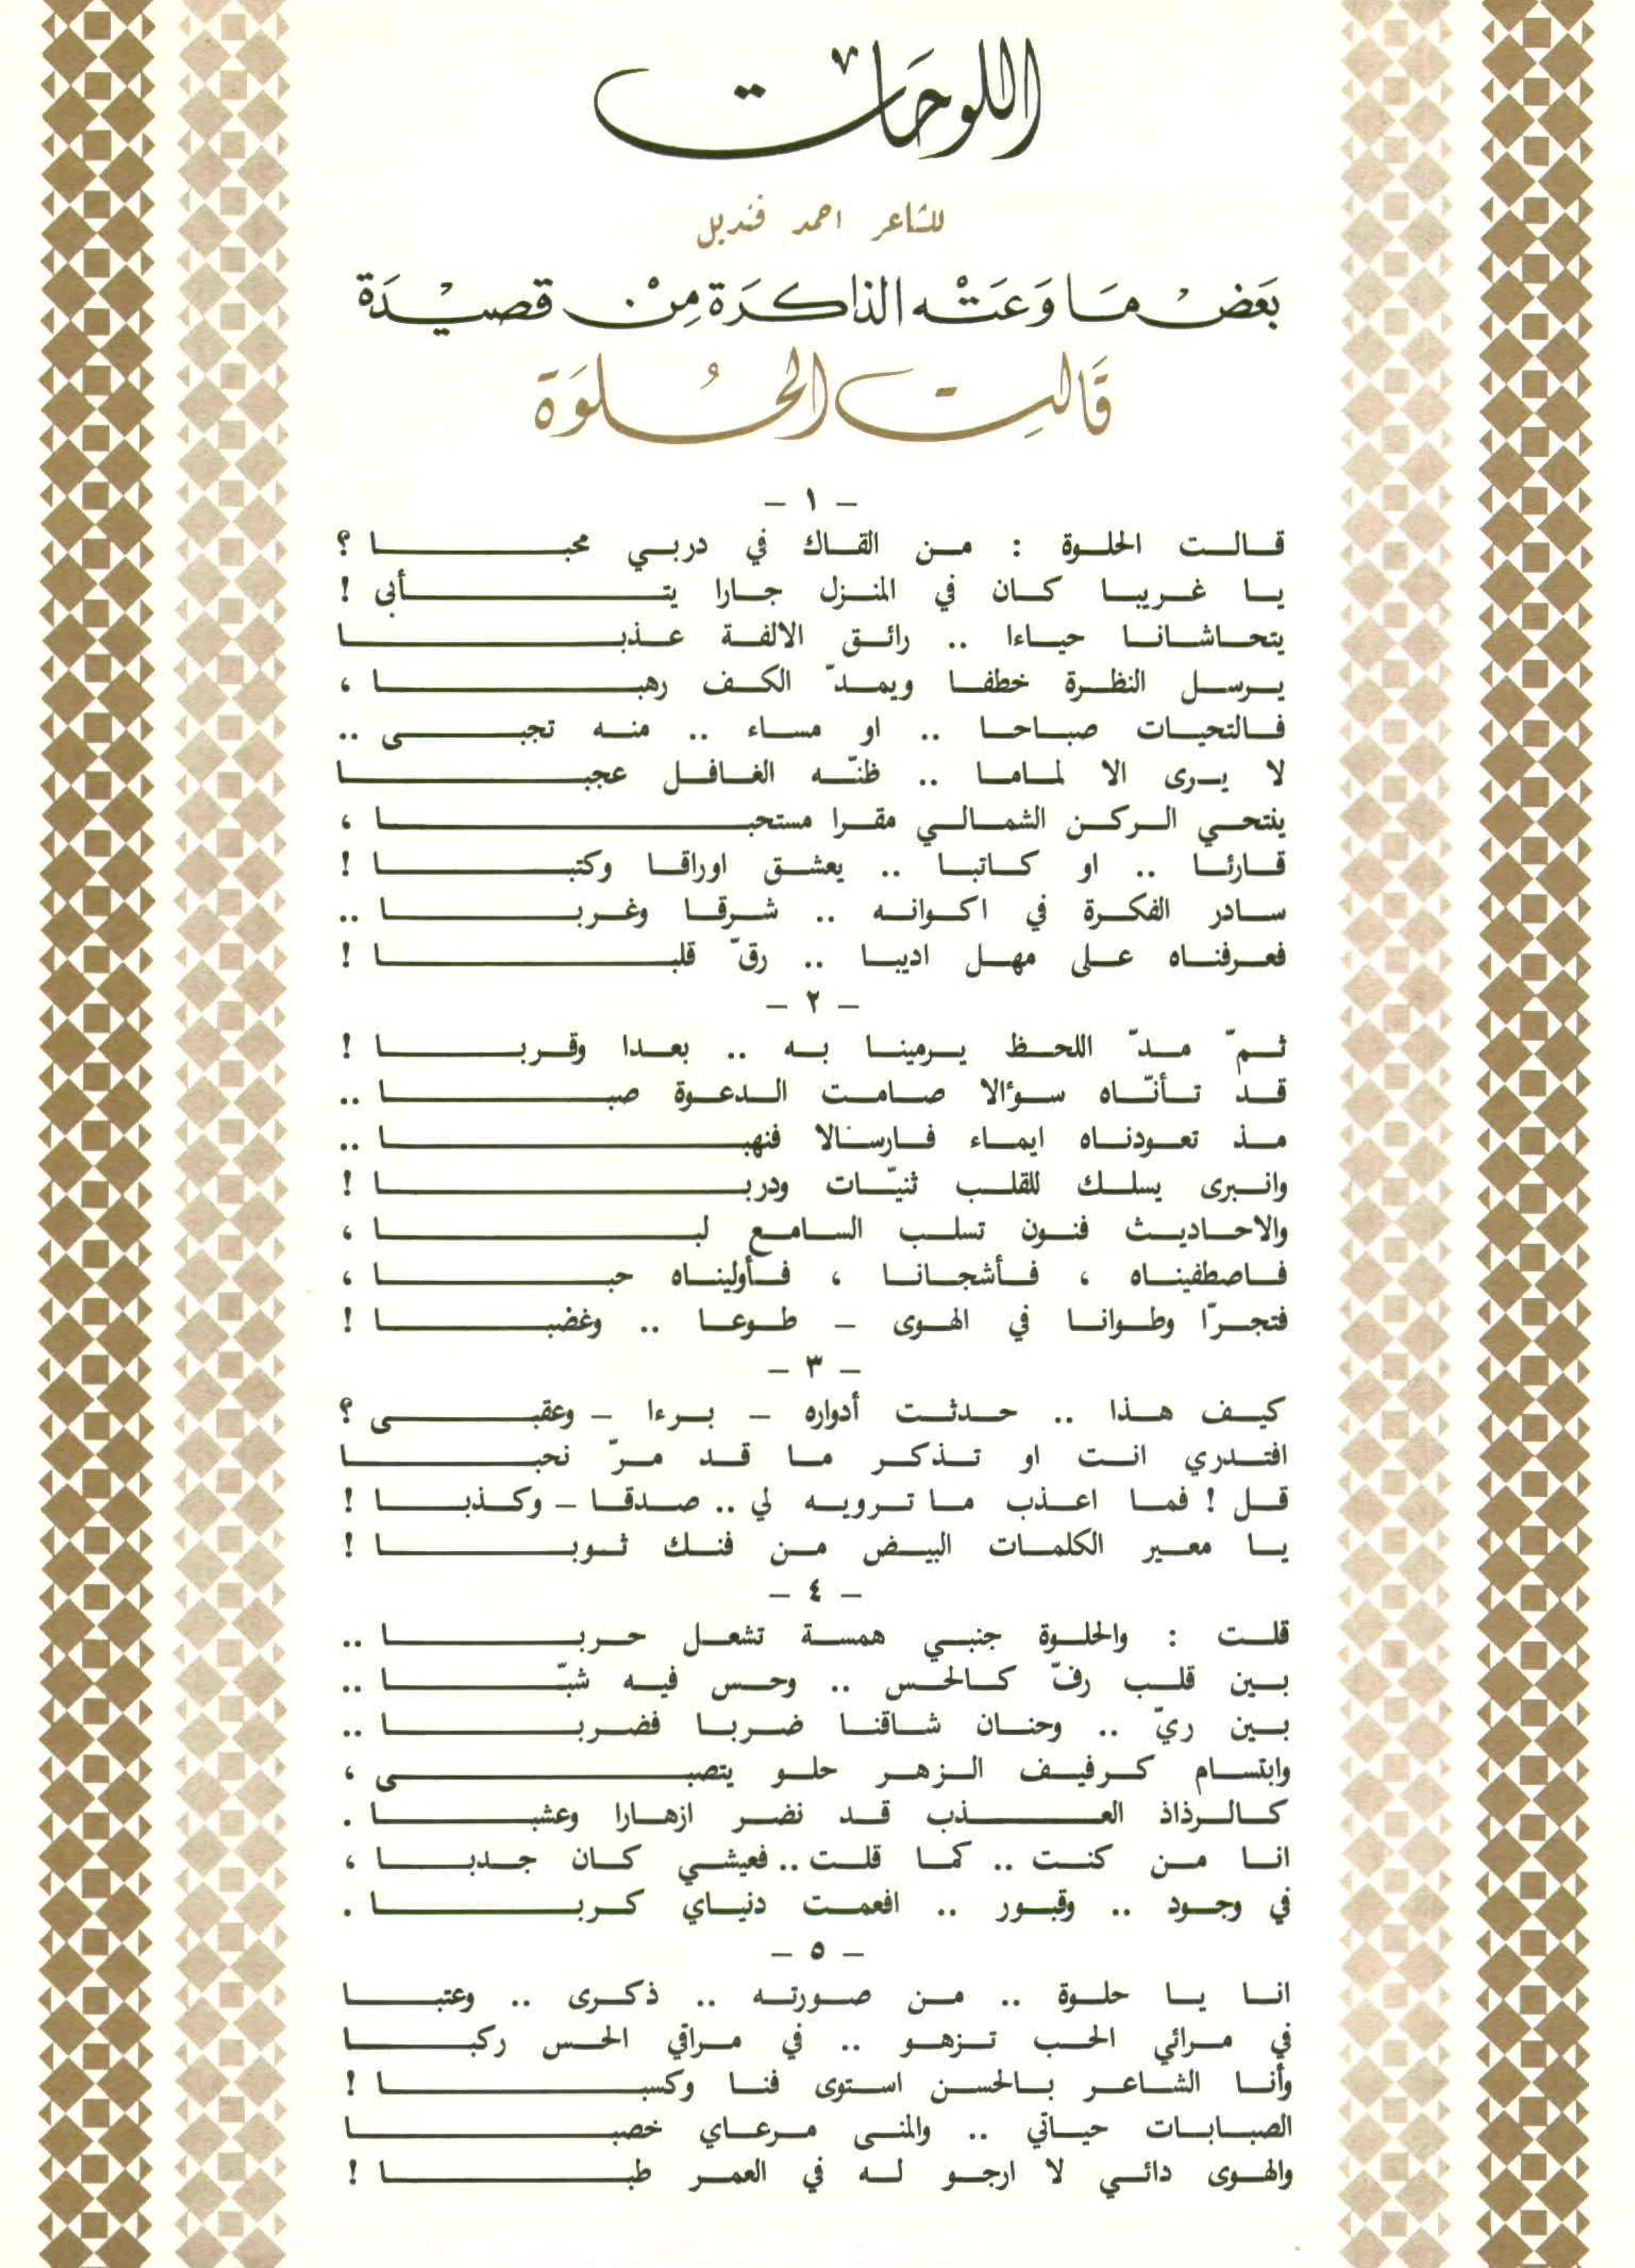 اللوحات
للشاعر احمد قنديل
بَعَضْ مَا وَعَتْه الذاكرَة مِنْ قصيْدَة
قَالتِ الحُلوَة
- ١ -
قالت الحلوة : من القاك في دربي محبا ؟
يا غريبا كان في المنزل جارا يتأبى !
يتحاشانا حياءا .. رائق الالفة عذبا
يرسل النظرة خطفا ويمدّ الكف رهبا ،
فالتحيات صباحا .. او مساء .. منه تجبى ..
لا يرى الا لماما .. ظنّه الغافل عجبا
ينتحي الركن الشمالي مقرا مستحبا ،
قارئا .. او كاتبا .. يعشق اوراقا وكتبا !
سادر الفكرة في اكوانه .. شرقا وغربا ..
فعرفناه على مهل اديبا .. رقّ قلبا !
- ٢ -
ثمّ مدّ اللحظ يرمينا به .. بعدا وقربا !
قد تأنّاه سؤالا صامت الدعوة صبا ..
مذ تعودناه ايماء فارسالا فنهبا ..
وانبرى يسلك للقلب ثنيّات ودربا !
والاحاديث فنون تسلب السامع لبا ،
فاصطفيناه ، فأشجانا ، فأوليناه حبا ،
فتجرّا وطوانا في الهوى - طوعا .. وغضبا !
- ٣ -
كيف هذا .. حدثت أدواره - برءا - وعقبى ؟
افتدري انت او تذكر ما قد مرّ نحبا
قل ! فما اعذب ما ترويه لي .. صدقا - وكذبا !
يا معير الكلمات البيض من فنك ثوبا !
- ٤ -
قلت : والحلوة جنبي همسة تشعل حربا ..
بين قلب رفّ كالحس .. وحس فيه شبّا ..
بين ريّ .. وحنان شاقنا ضربا فضربا ..
وابتسام كرفيف الزهر حلو يتصبى ،
كالرذاذ العذب قد نضر ازهارا وعشبا .
انا من كنت .. كما قلت .. فعيشي كان جدبا ،
في وجود .. وقبور .. افعمت دنياي كربا .
- ٥ -
انا يا حلوة .. من صورته .. ذكرى .. وعتبا
في مرائي الحب تزهو .. في مراقي الحس ركبا
وأنا الشاعر بالحسن استوى فنا وكسبا !
الصبابات حياتي .. والمنى مرعاي خصبا
والهوى دائي لا ارجو له في العمر طبا !